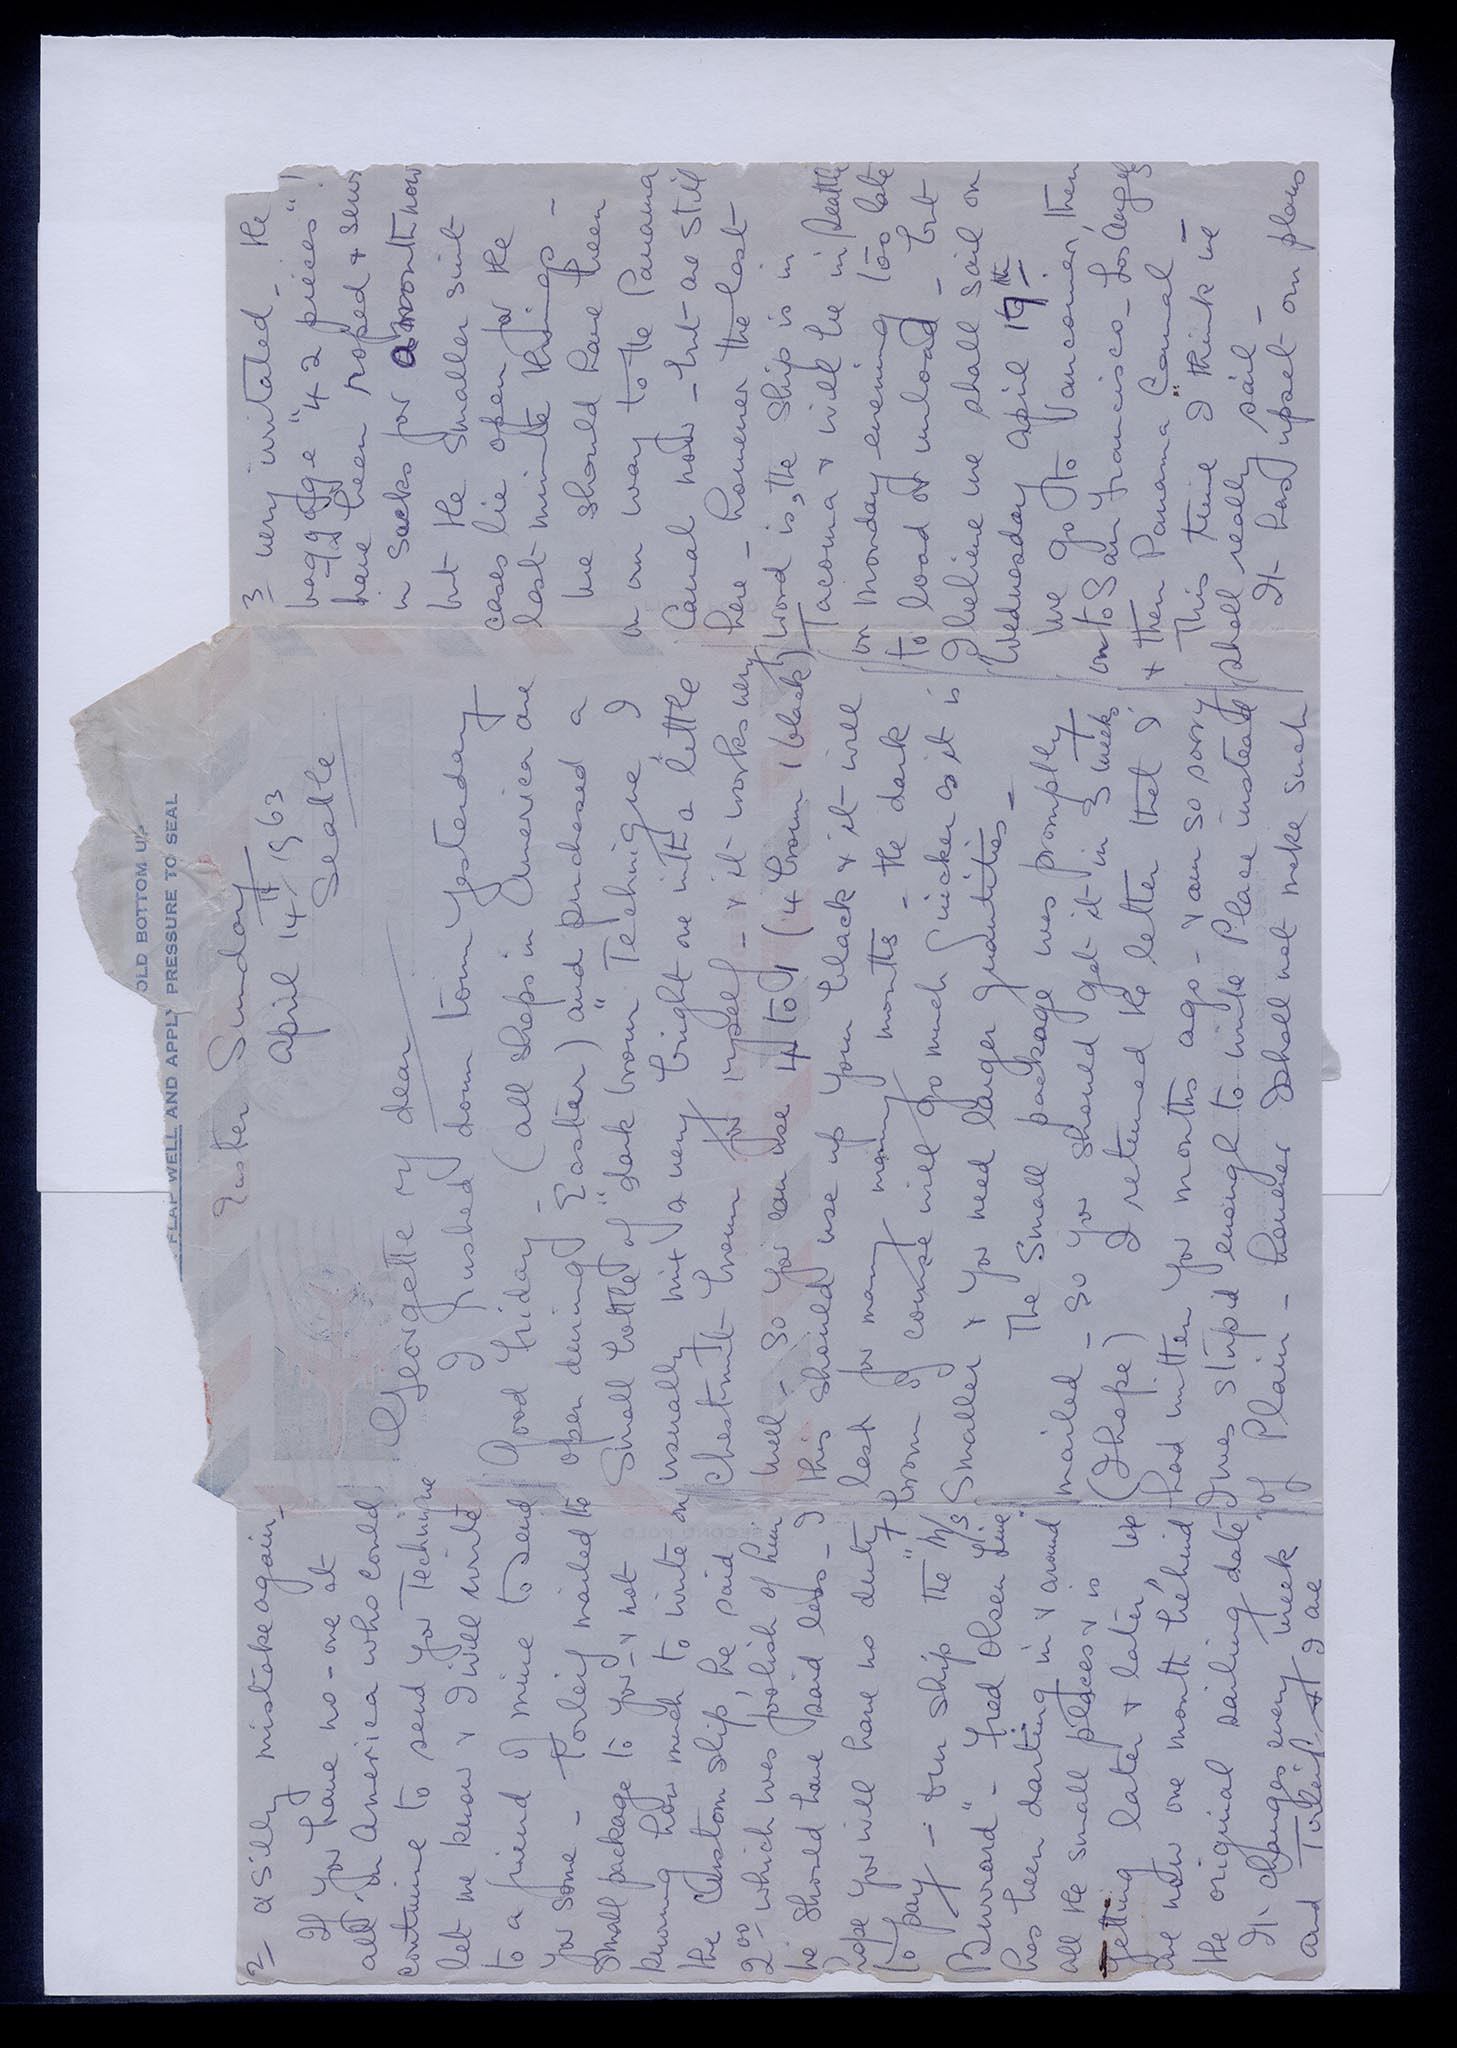 FLAP WELL AND APPLY PRESSURE TO SEAL
OLD BOTTOM UP
Easter Sunday
April 14th 1963
Seattle
Georgette my dear
I rushed down town yesterday
Good Friday - (all shops in America are
open during Easter) and purchased a
small bottle of "dark brown" Technique I
usually mix a very bright one with a little
chestnut brown for myself - & it works very
well - so you can use 4 to 1 (4 brown 1 black)
this should use up your black & it will
last for many many months - the dark
brown of course will go much quicker as it is
smaller & you need larger quantities -
The small package was promptly
mailed - so you should get it in 3 weeks
(I hope) I returned the letter that I
had written you months ago - & am so sorry
I was stupid enough to write Place instead
of Plain - however I shall not make such
2 a silly mistake again -
If you have no-one at
all in America who could
continue to send you Technique
let me know & I will write
to a friend of mine to send
you some - Torleif mailed the
small package to you & not
knowing how much to write on
the custom slip, he said
2.00 which was foolish of him
he should have said less - I
hope you will have no duty
to pay - our ship the "M/S
Buward" - Fred Olsen Line
has been darting in & around
all the small places & is
getting later & later, up
till now one month behind
the original sailing date
It changes every week
and Torleif & I are
3 very irritated - the
baggage "42 pieces"!
have been roped & sewn
in sacks for a month now
but the smaller suit
cases lie open for the
last minute things -
We should have been
on our way to the Panama
Canal now - but are still
here - however the last
word is, the ship is in
Tacoma & will be in Seattle
on Monday evening too late
to load or unload - but
I believe we shall sail on
Wednesday April 17th
We go to Vancouver, then
on to San Francisco - Los Angeles
& then "Panama Canal" -
This time I think we
shall really sail -
It has upset our plans
SECOND FOLD